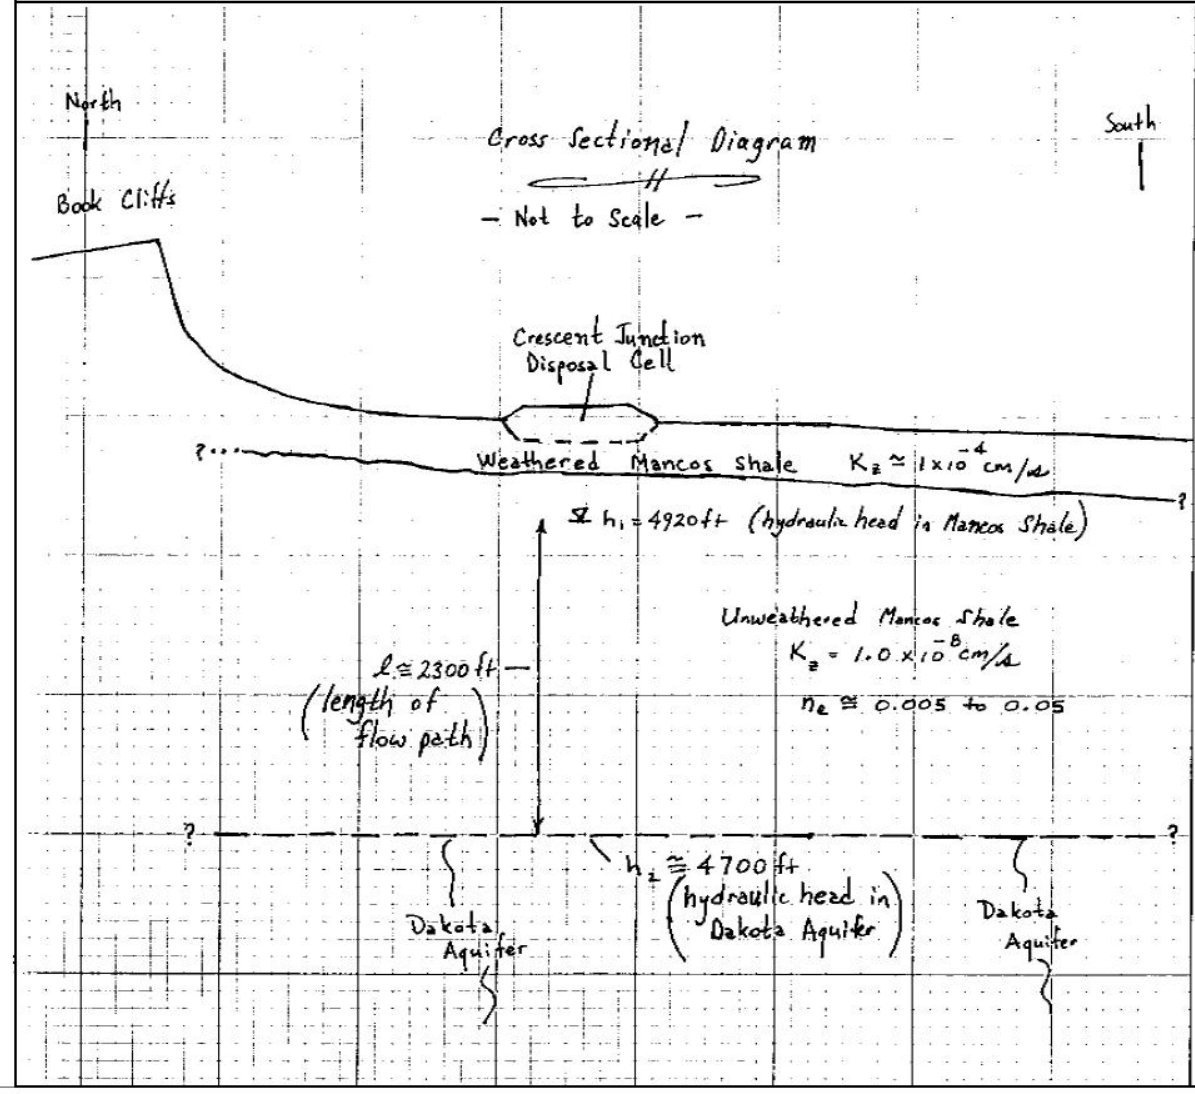 North
South
Cross Sectional Diagram
- Not to Scale -
Book Cliffs
Crescent Junction
Disposal Cell
?
Weathered Mancos Shale K_z ≃ 1x10^-4 cm/s
?
h₁ = 4920 ft (hydraulic head in Mancos Shale)
Unweathered Mancos Shale
K_z = 1.0 x 10^-8 cm/s
n_e ≅ 0.005 to 0.05
l ≅ 2300 ft
(length of
flow path)
?
?
h₂ ≅ 4700 ft
(hydraulic head in
Dakota Aquifer)
Dakota
Aquifer
Dakota
Aquifer